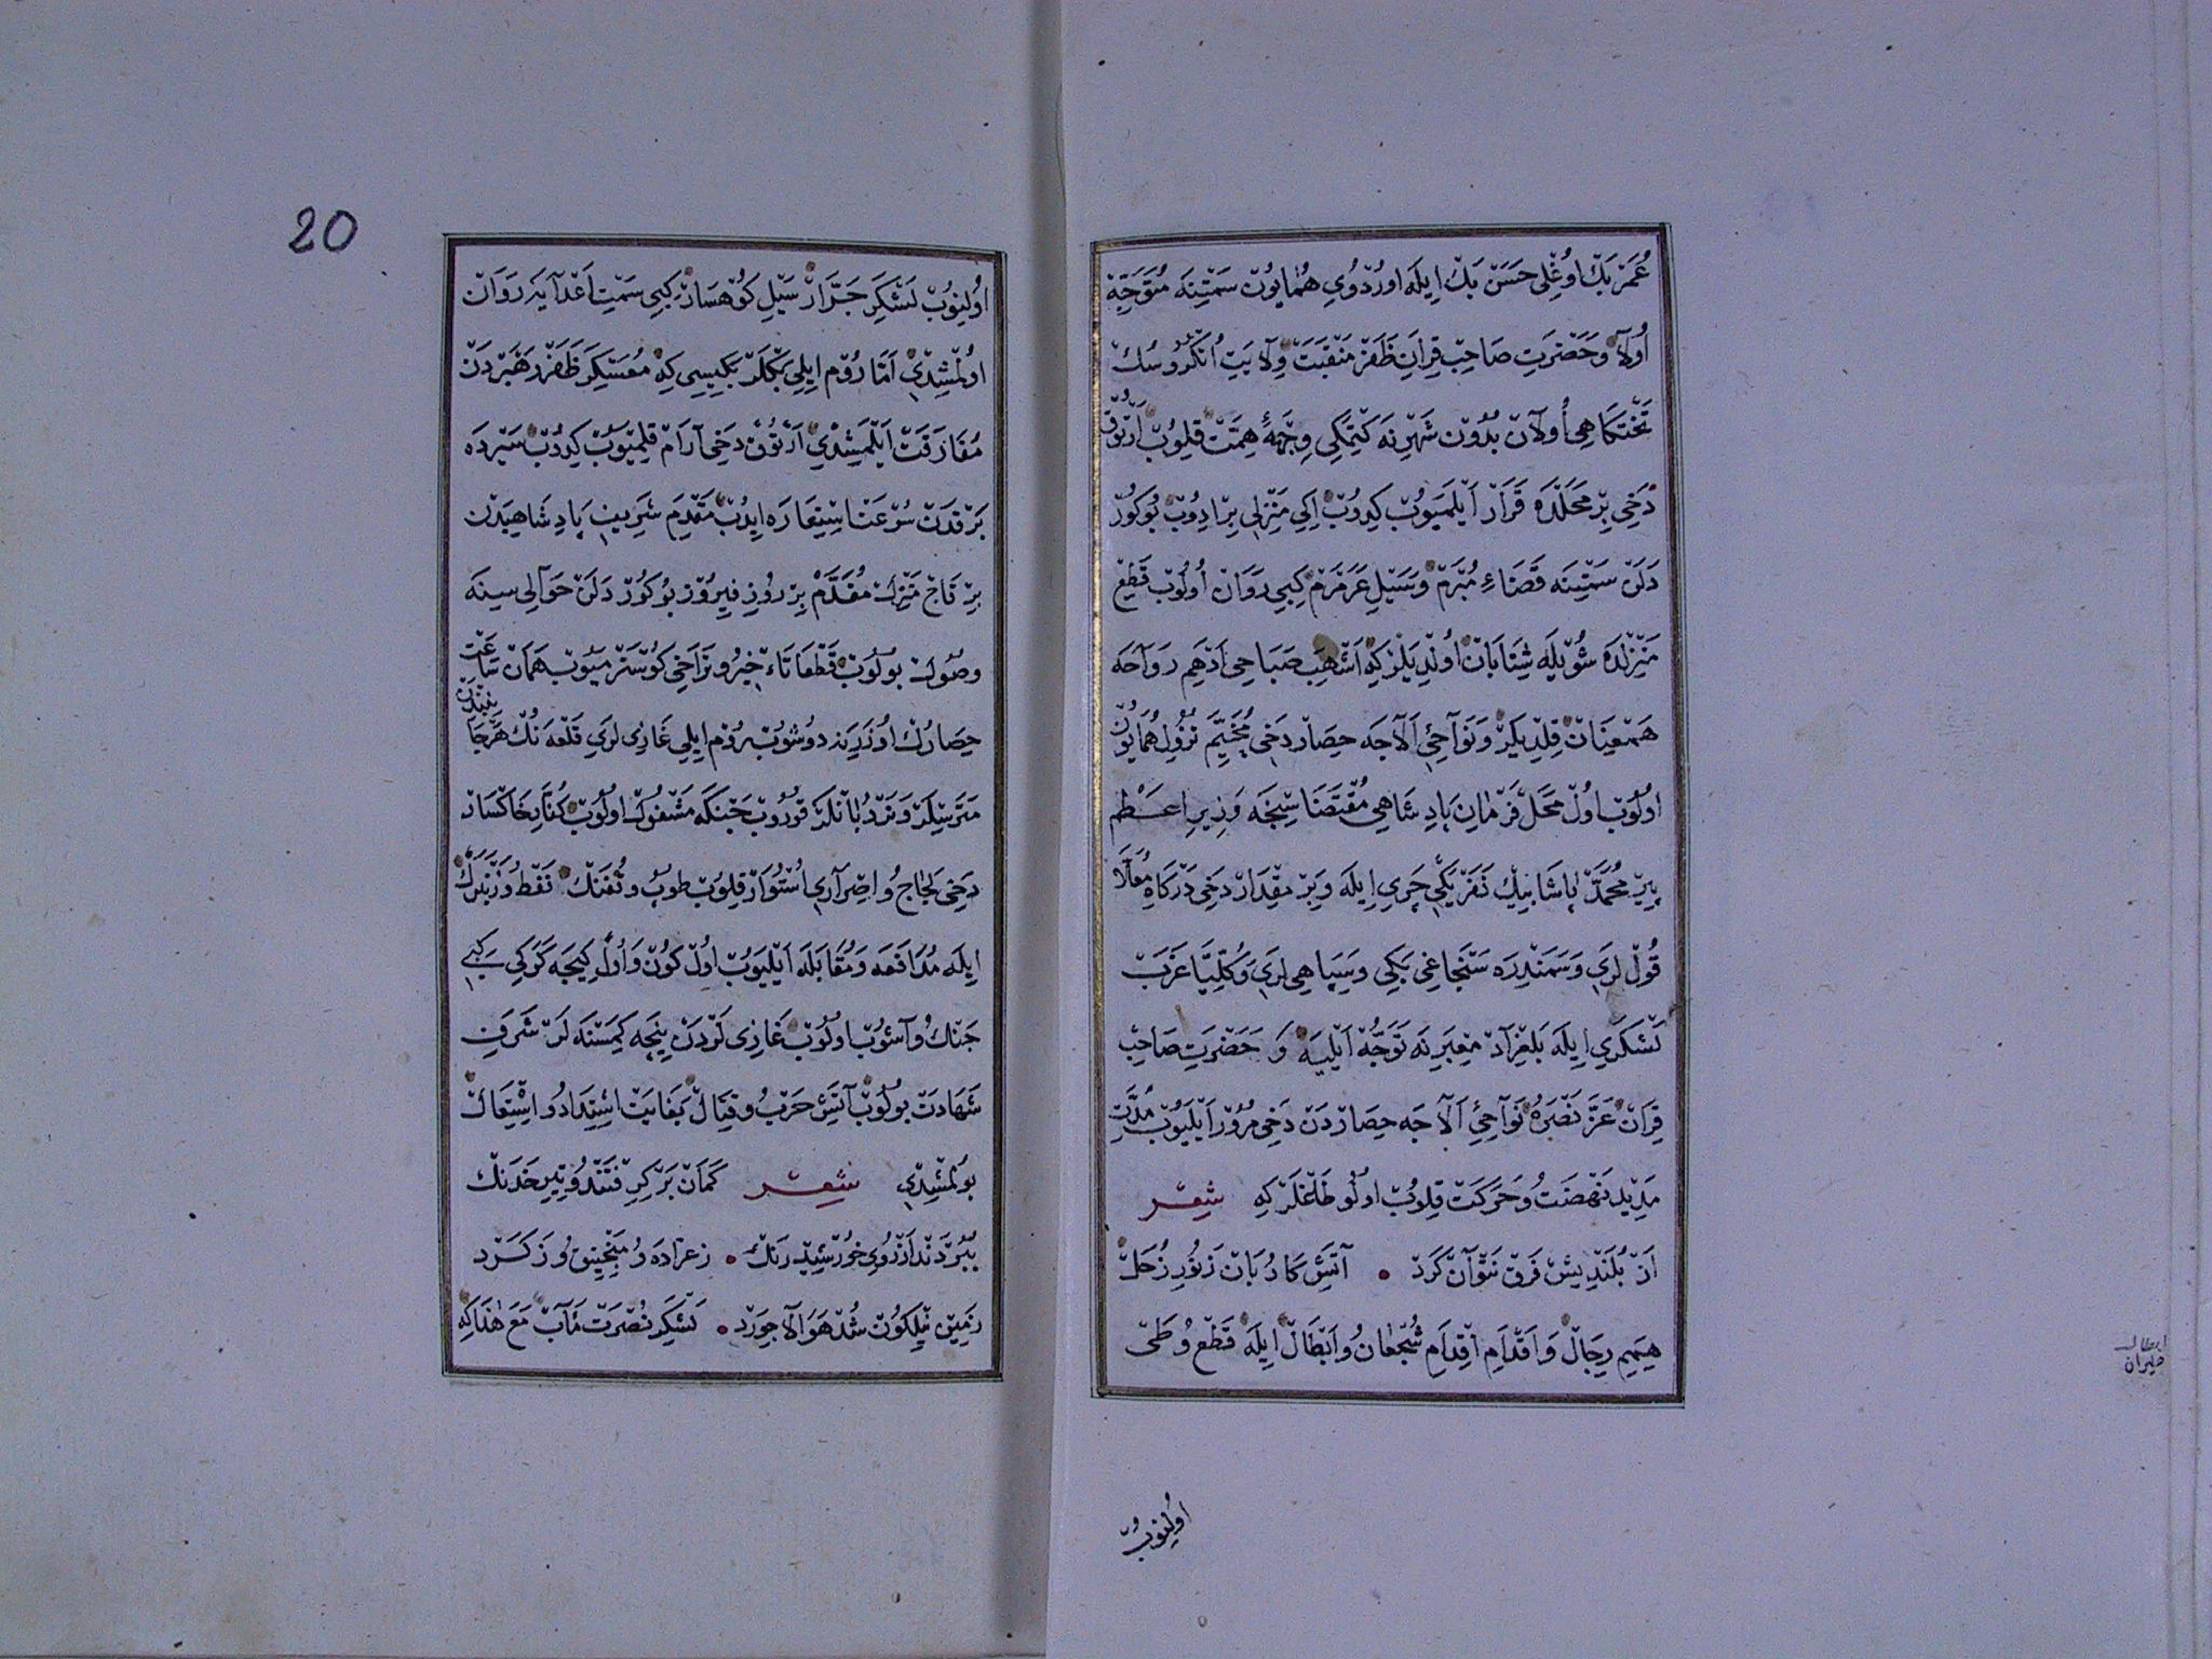 عُمَرْ بَكْ اوُغْلِى حَسَنْ بَكْ اِيلَه اورُدْوُىِ هُمَايوُنْ سَمْتِنَه مُتَوَجِّهْ
اُولَا وَحَضْرَتِ صَاحِبْ قِرَانِ ظَفَرْ مَنْقَبَتْ وِلَايَتِ اُنْكُروُسُكْ
تَخْتكَاهِى اُولَانْ بُدُونْ شَهْرِنَه كِتْمَكِى وِجْهَهٔ هِمَّتْ قِلُوبْ اَرْتُوقْ
دَخِى بِرْ مَحَلْدَه قَرَارْ اَيْلَمَيُوبْ كِيدُوبْ اِكِى مَنْزِلِى بِرْ ادِوُبْ بُوكُورْ
دَلَنْ سَمْتِنَه قَضَاءِ مُبْرَمْ وَسَيْلِ عَرَمْرَمْ كِبِى رَوَانْ اُولُوبْ قَطْعِ
مَنْزِلْدَه شُوْيلَه شِتَابَانْ اُولْدِيلَرْ كِه اَشْهَبِ صَبَاحِى اَدْهَمِ رَوَاحَه
هَمْعِنَانْ قِلْدِيلَرْ وَنَوَاحِئِ اَلَاجَه حِصَارْ دَخِى مُخَيَّمِ نُزُولِ هُمَايُونْ
اوُلُوبْ اوُلْ مَحَلْ فَرْمَانِ پَادِشَاهِى مُقْتَضَاسِنْجَه وَزِيرِ اعَظَمْ
پِيرِ مُحَمَّدْ پَاشَا بِيكْ نَفَرْ يَكِى چَرِى اِيلَه وَبِرْ مِقْدَارْ دَخِى دَرْكَاهِ مُعَلَّا
قُوللَرِى وَسَمَنْدِرَه سَنْجَاغِى بَكِى وَسِپَاهِى لَرِى وَكُلِّيًّا عَزَبْ
لَشْكَرِى اِيلَه بَلْغِرَادْ مَعْبَرِنَه تَوَجُّهْ اَيْلَيَه وَ حَضْرَتِ صَاحِبْ
قِرَانْ عَزَّ نَصْرُهُ نَوَاحِئِ اَلَاجَه حِصَارْدَنْ دَخِى مُرُورْ اَيْلَيُوبْ مُدَّتِ
مَدِيدْ نَهْضَتْ وُ حَرَكَتْ قِلُوبْ اولُو طَاغْلَرْ كِه شِعْر
اَزْ بُلَنْدِيشْ فَرْقِ نَتْوَانْ كَرْد • آتَشِ كَارُبَانْ زَنُورِ زُحَلْ
هِمَمِ رِجَالْ وَاَقْدَامِ اِقْدَامِ شُجْعَانُ وَاَبْطَالْ اِيلَه قَطْعُ وَ طَىّ
اوُلِنوُبْ
ابطال
دليران
20
اوُلِنوُبْ لَشْكَرِ جَرَّارْ سَيْلِ كوُهْسَارْ كِبِى سَمْتِ اَعْدَايَه رَوَانْ
اوُلْمُشِدِى اَمَّا رُومْ اِيلِى بَكْلَرْبَكِيسِى كِه مُعَسْكَرِ ظَفَرْ رَهْبَرْدَنْ
مُفَارَقَتْ اَيْلَمِشْدِى اَرْتُوقْ دَخِى آرَامْ قِلْمَيُوبْ كِيدُوبْ سَيْرْدَه
بَرْقدَنْ سُرْعَتْ اسِتِعَارَه ايِدُبْ مَقْدَمِ شَرِيفِ پَادِشَاهِيدَنْ
بِرْ قَاجْ مَنْزِلْ مُقَدَّمْ بِرْ روُزِ فِيروُزْ بُوكُورْدَلَنْ حَوَالِى سِينَه
وصُولْ بوُلُوبْ قَطْعَا تَاءْخِيرُ وتَرَاخِى كوُسْتَرْمَيُوبْ هَمَانْ سَاعَتْ
حِصَارُكْ اُوزَرِينَه دُوشُوبْ رُومْ اِيلِى غَازِى لَرِى قَلْعَه نُكْ هَرْجَانِبِنْدَنْ
مَتَرِسْلَرْ وَنَرْدُبَانْلَرْ قُورُوبْ جَنْكَه مَشْغُولْ اوُلُوبْ كُفَّارِ خَاكْسَارْ
دَخِى لِجَاجُ وَاِصْرَارِى اُسْتُوَارْ قِلُوبْ طوُبْ وَتُفَنْكْ نَفْطُ وَزَنْبَرَكْ
اِيلَه مُدَافَعَه وَمُقَابَلَه اَيْلَيُوبْ اوُلْ كوُنْ وَاُوْلْ كِيجَه كَرَكِى كِبِى
جَنْكُ وَآشُوبْ اوُلُوبْ غَازِى لَرْدَنْ نِيجَه كِمَسْنَه لَرْ شَرَفِ
شَهَادَتْ بوُلُوبْ آتَشِ حَرْبُ وقِتَالْ بَغَايَتْ اشْتِدَادُ وَاشْتِعَالْ
بُولْمُشِدِى شِعْر كَمَانْ بَرْ كِرِفْتَنْدُ وَتِيرِ خَدَنْكْ
بِبُرْدَنْد اَزْ رُوىِ خُورْشِيدْ رَنْكْ • زعَرَّادَه وُ مَنْجِنِيقُ وَزَكَرْد
زَمِينْ نِيلكوُنْ شُدْ هَوَا لَاجِوَرْد • لَشْكَرِ نُصْرَتْ مَآبْ مَعَ هَذَا كِه